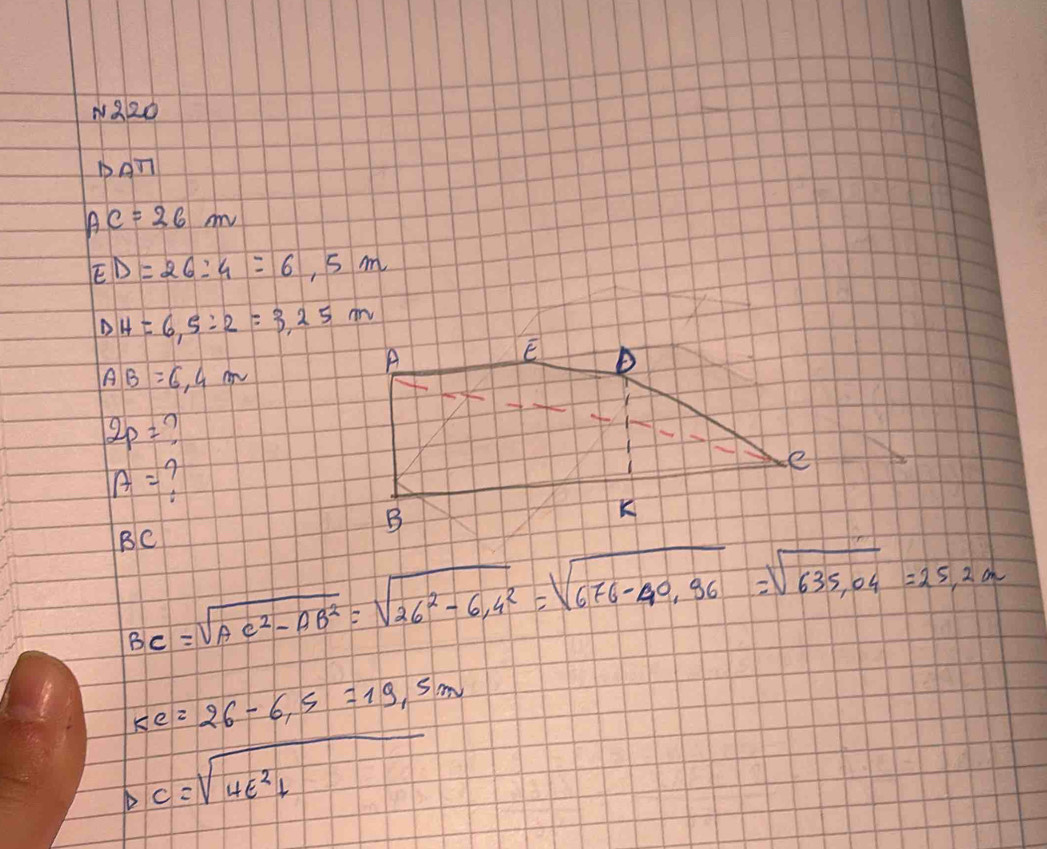 N220
DATI
AC = 26 m
ED = 26 : 4 = 6,5 m
DH = 6,5 : 2 = 3,25 m
AB = 6,4 m
2p = ?
A = ?
BC
A E D
C
B K
BC = √AC² - AB² = √26² - 6,4² = √676 - 40,96 = √635,04 = 25,2 m
KC = 26 - 6,5 = 19,5 m
DC = √HE² +